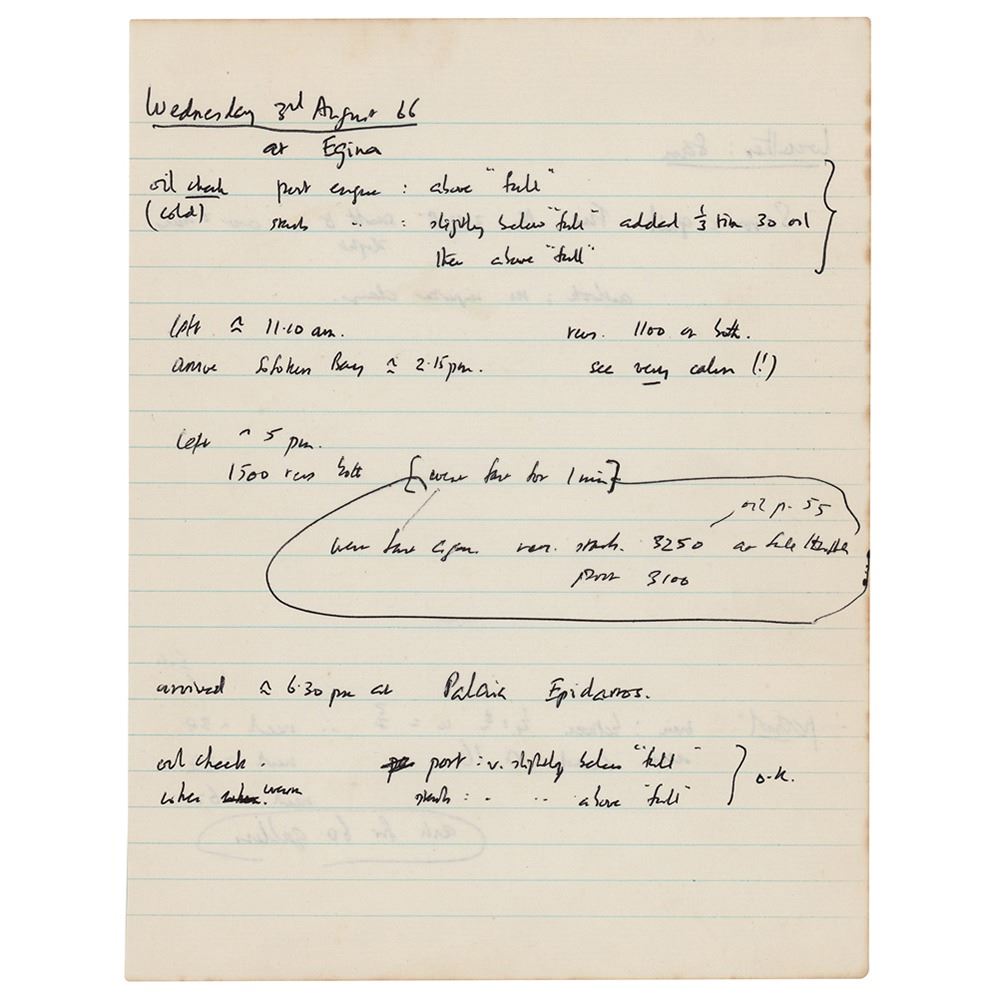 Wednesday 3rd August 66
at Egina
oil check port engine : above "full"
(cold) starb. " : slightly below "full" added 1/3 tin 30 oil
then above "full"
left ≃ 11.10 am. revs. 1100 on both.
arrive Bay ≃ 2.15 pm. see very calm (!)
left ~ 5 pm.
1500 revs both [went fast for 1 min]
oil p. 55
went fast again. rev. starb. 3250 at full throttle
port 3100
arrived ≃ 6.30 pm at Palaia Epidavros.
oil check. port : v. slightly below "full" o.k.
when warm starb : " " above "full"